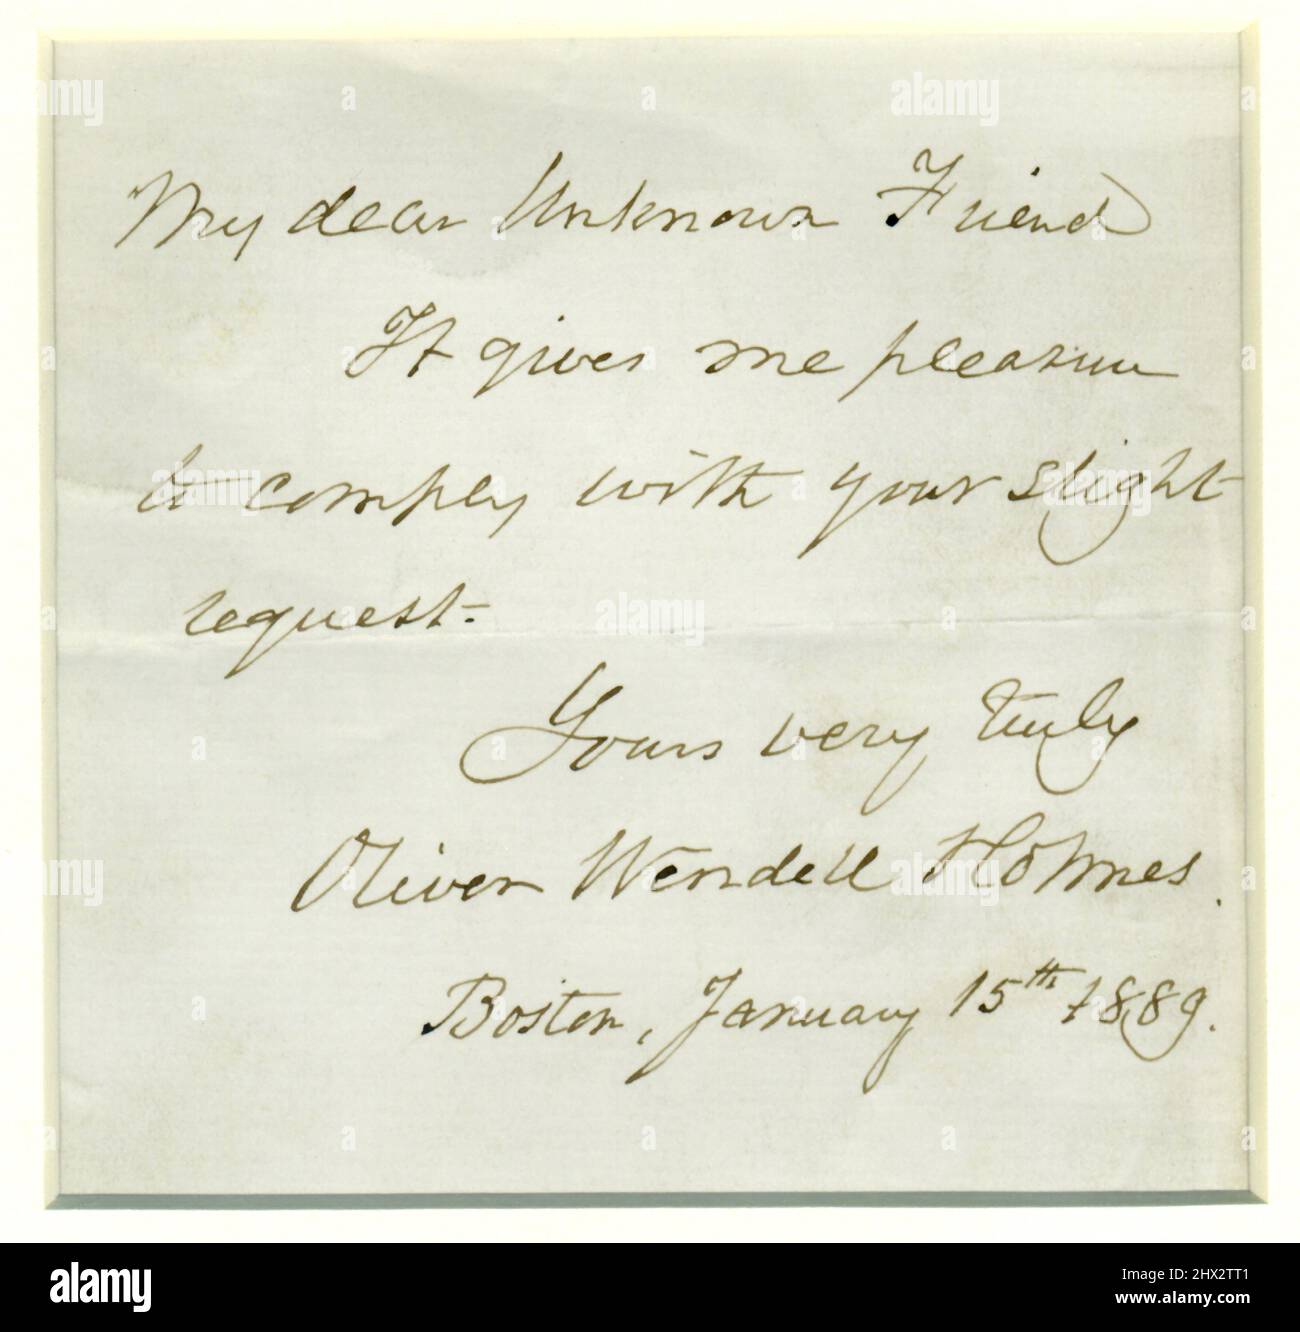 My dear Unknown Friend
It gives me pleasure
to comply with your slight
request.
Yours very truly
Oliver Wendell Holmes.
Boston, January 15th 1889.
alamy
Image ID: 2HX2TT1
www.alamy.com